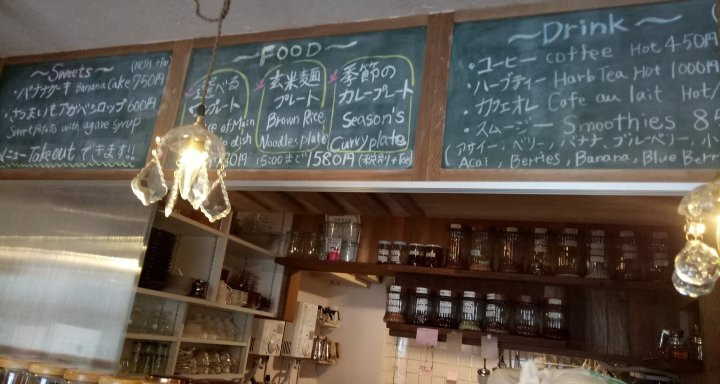 ~Sweets~ (税別 +tax)
・バナナケーキ Banana Cake 750円
・さつまいもアガベシロップ 600円
Sweet Potato with agave syrup
メニュー Takeout できます!!
~FOOD~
選べる
プレート
Main
dish
玄米麺
プレート
Brown Rice
Noodles plate
季節の
カレープレート
Season's
Curry plate
15:00まで 1580円 (税別+tax)
~Drink~
・コーヒー coffee Hot 450円
・ハーブティー Harb Tea Hot 1000円
・カフェオレ Cafe au lait Hot/
・スムージー Smoothies 8
アサイー・ベリー・バナナ・ブルーベリー・
Acai, Berries, Banana, Blue Berr